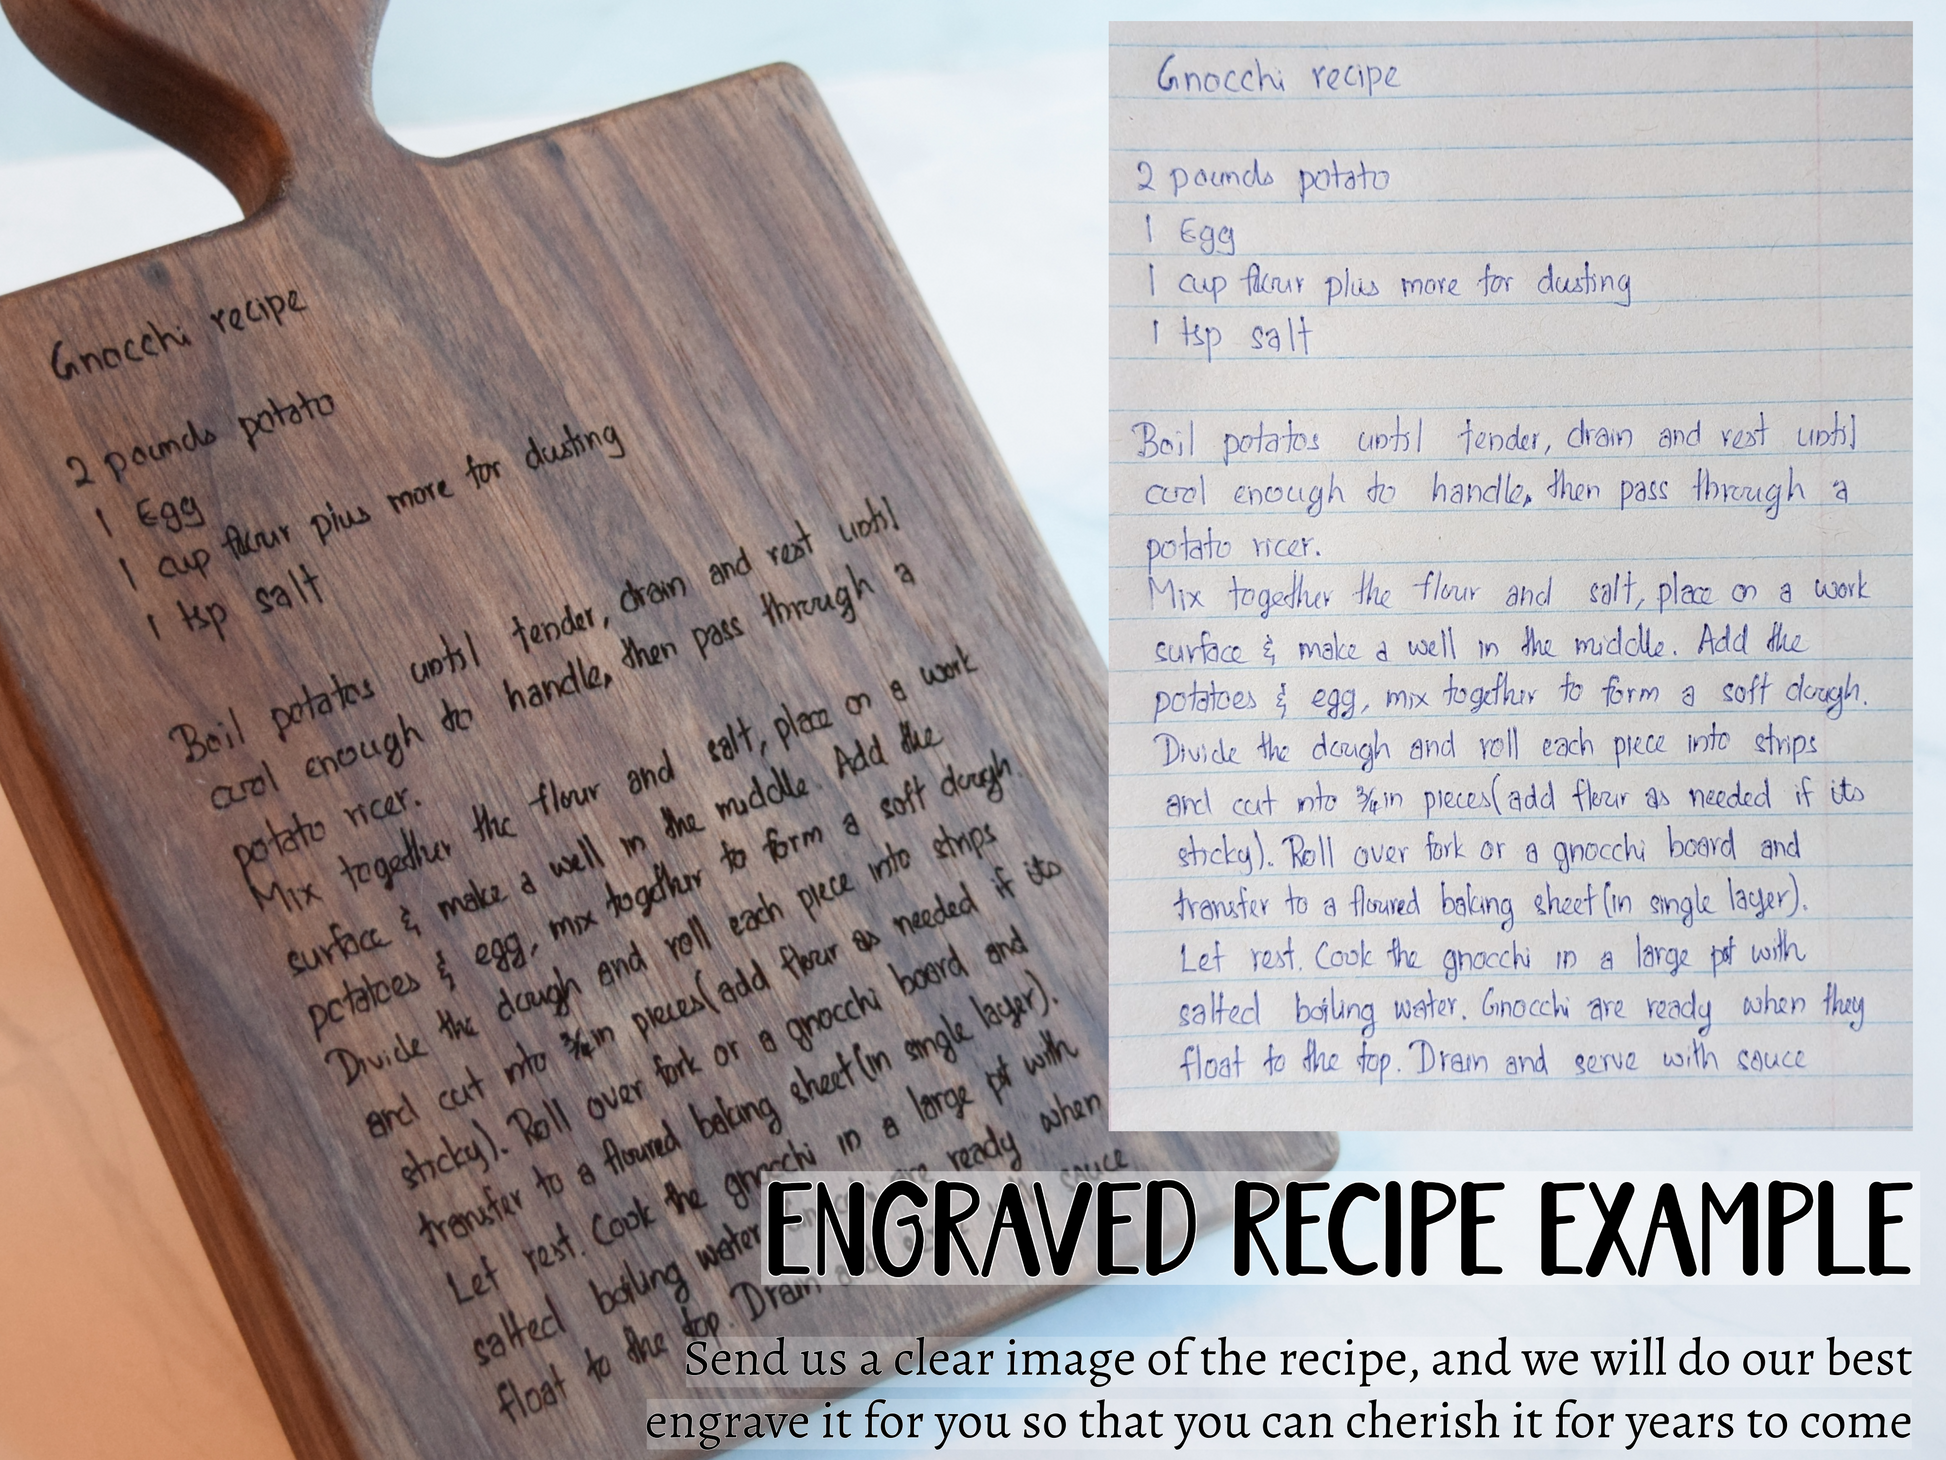 Gnocchi recipe
2 pounds potato
1 Egg
1 cup flour plus more for dusting
1 tsp salt
Boil potatos until tender, drain and rest until
cool enough to handle, then pass through a
potato ricer.
Mix together the flour and salt, place on a work
surface & make a well in the middle. Add the
potatoes & egg, mix together to form a soft dough.
Divide the dough and roll each piece into strips
and cut into 3/4 in pieces(add flour as needed if its
sticky). Roll over fork or a gnocchi board and
transfer to a floured baking sheet(in single layer).
Let rest. Cook the gnocchi in a large pot with
salted boiling water
float to the top. Drain
ready when
sauce
Gnocchi recipe
2 pounds potato
1 Egg
1 cup flour plus more for dusting
1 tsp salt
Boil potatos until tender, drain and rest until
cool enough to handle, then pass through a
potato ricer.
Mix together the flour and salt, place on a work
surface & make a well in the middle. Add the
potatoes & egg, mix together to form a soft dough.
Divide the dough and roll each piece into strips
and cut into 3/4 in pieces(add flour as needed if its
sticky). Roll over fork or a gnocchi board and
transfer to a floured baking sheet(in single layer).
Let rest. Cook the gnocchi in a large pot with
salted boiling water. Gnocchi are ready when they
float to the top. Drain and serve with sauce
ENGRAVED RECIPE EXAMPLE
Send us a clear image of the recipe, and we will do our best
engrave it for you so that you can cherish it for years to come